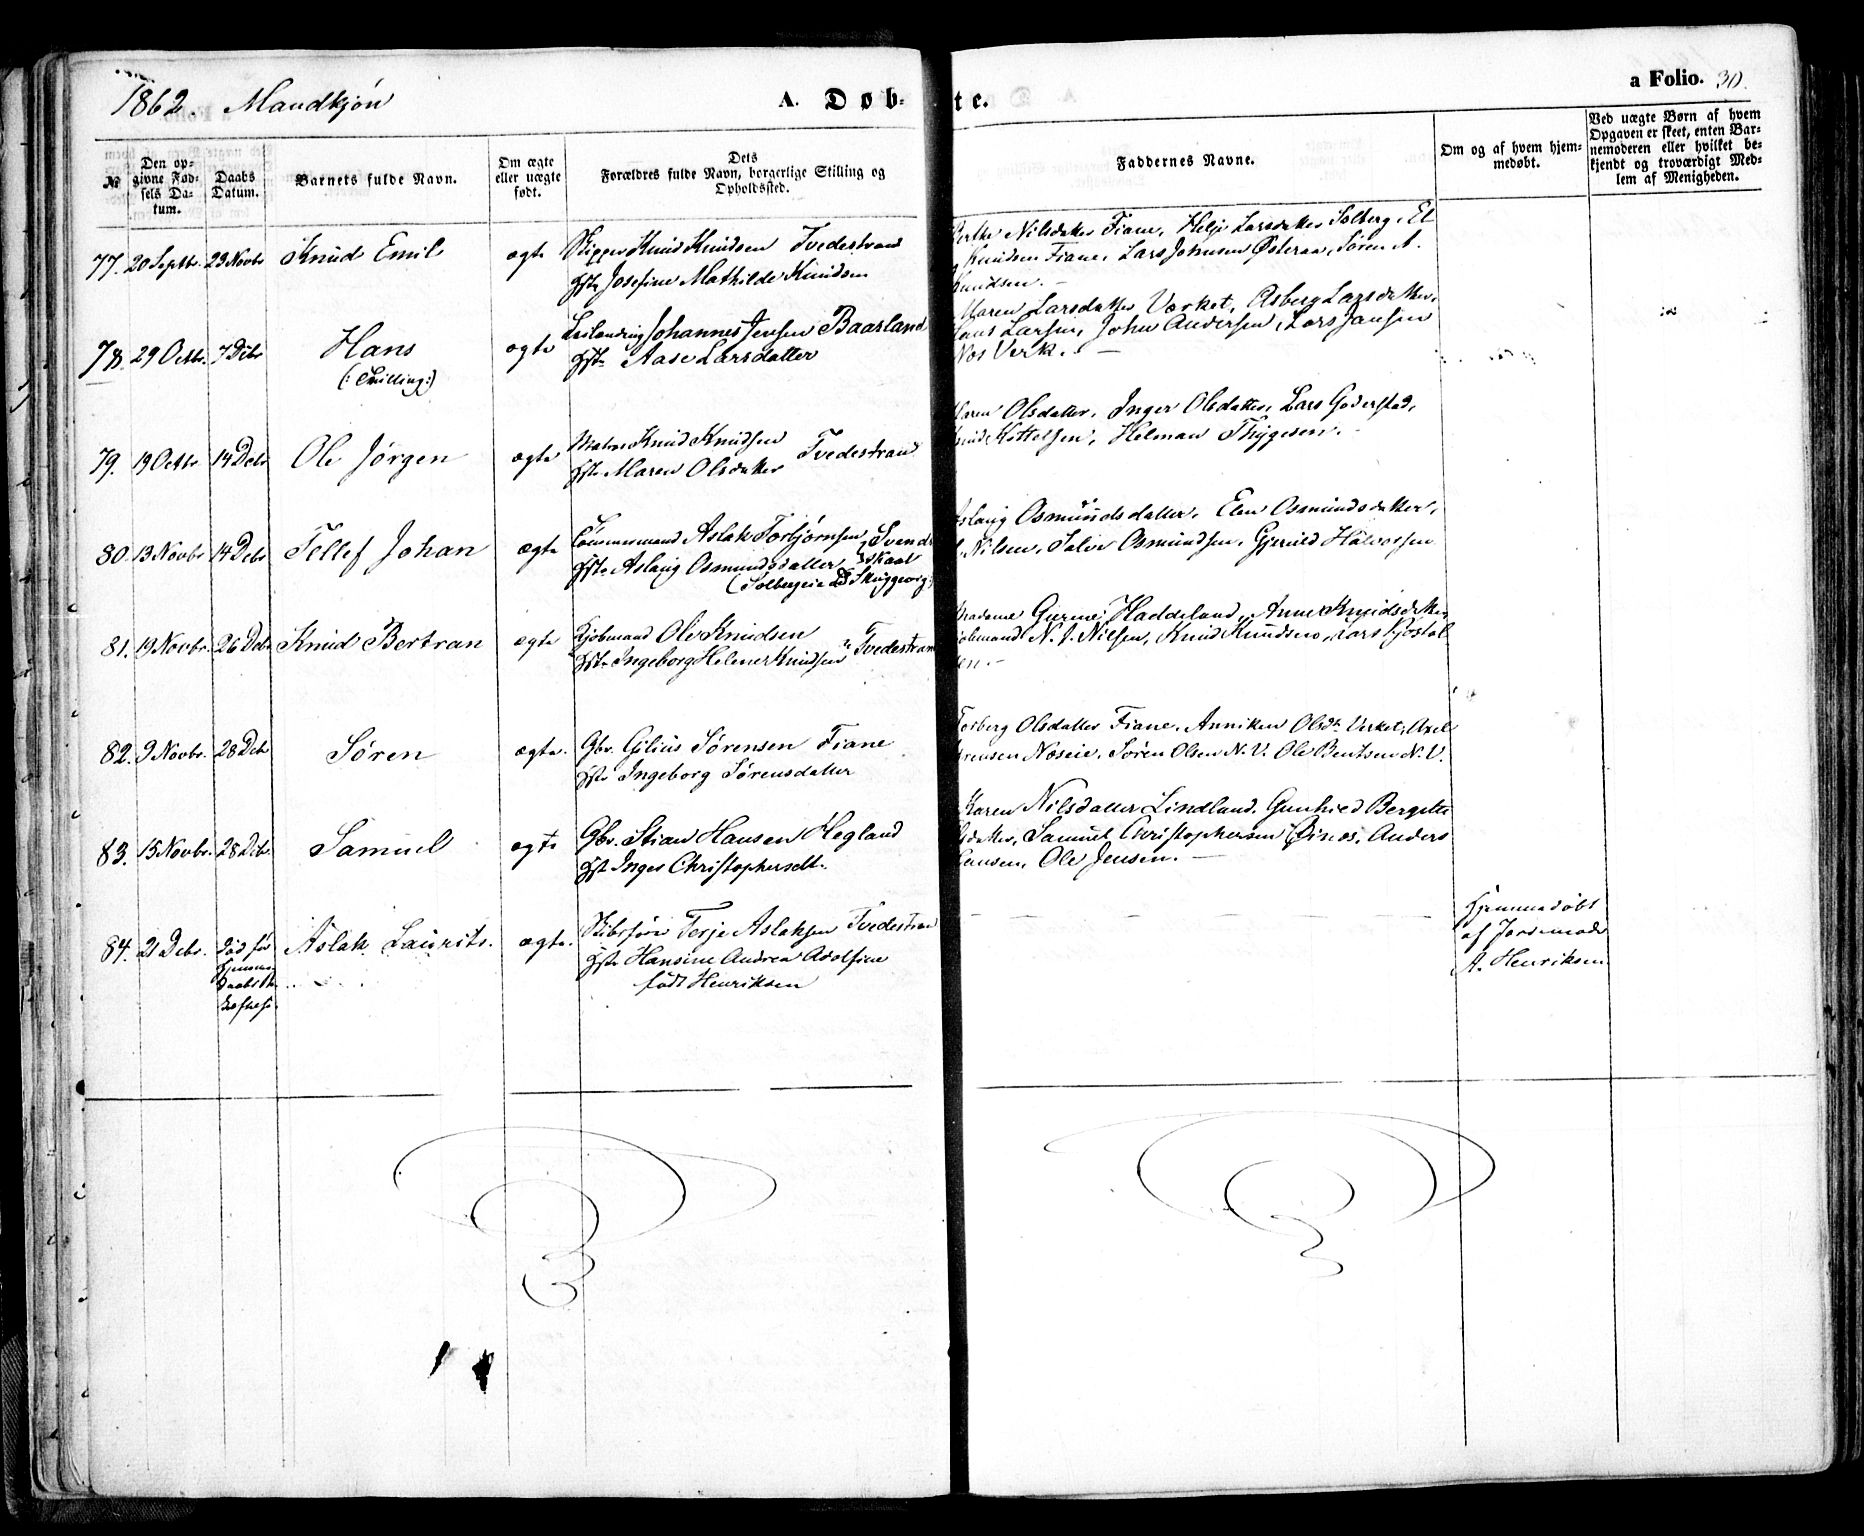 1862. Mandkjøn
A. Døb-
te.
a Folio. 30.
№
Den op-
givne Fød-
sels Da-
tum.
Daabs
Datum.
Barnets fulde Navn.
Om ægte
eller uægte
født.
Dets
Forældres fulde Navn, borgerlige Stilling og
Opholdssted.
Faddernes Navne.
Om og af hvem hjem-
medøbt.
Ved uægte Børn af hvem
Opgaven er skeet, enten Bar-
nemoderen eller hvilket be-
kjendt og troværdigt Med-
lem af Menigheden.
77. 20 Septbr. 23 Novbr Knud Emil ægte Skipper Knud Knudsen Tvedestrand
Hst. Josefine Mathilde Knudsen
Berthe Nilsdatter Fiane, Helje Larsdatter Solberg, El
Knudsen Fiane, Lars Johnsen Østeraa, Søren A.
Knudsen.
78. 29 Octbr. 7 Debr Hans ægte Leilending Johannes Jensen Baasland
(: Tvilling :) Hst. Aase Larsdatter
Maren Larsdatter Værket, Asberg Larsdatter,
Hans Larsen, John Andersen, Lars Jansen
Næs Verk. —
79. 19 Octbr 14 Debr Ole Jørgen ægte Matros Knud Knudsen Tvedestrand
Hst. Maren Olsdatter
Maren Olsdatter, Inger Olsdatter, Lars Goderstad,
Knud Kittelsen, Helman Thygesen.
80. 13 Novbr 14 Debr Tellef Johan ægte Tømmermand Aslak Torbjørnsen Svend
Hst. Aslaug Osmundsdatter skaat
(Solbergeie Skuggevig)
Aslaug Osmundsdatter, Elen Osmundsdatter,
Nilsen, Salve Osmundsen, Gjeruld Halvorsen
81. 19 Novbr. 26 Debr Knud Bertran ægte Kjøbmand Ole Knudsen Tvedestrand
Hst. Ingeborg Helene Knudsen
Madame Haddeland, Anne Knudsdatter
Kjøbmand N. J. Nilsen, Knud Knudsen, Lars Kjøstol
sen. —
82. 9 Novbr. 28 Debr Søren ægte. Gbr. Gilius Sørensen Fiane
Hst. Ingeborg Sørensdatter
Torberg Olsdatter Fiane, Anniken Olsdtr. Verket, Axel
Sørensen Næseie, Søren Olsen N. V. Ole Bentsen N. V.
83. 15 Novbr. 28 Debr. Samuel ægte Gbr. Stian Hansen Hegland
Hst. Inger Christophersdt.
Karen Nilsdatter Lindland, Gunhild Bergitte
datter, Samuel Christophersen Øines, Anders
Hansen, Ole Jensen. —
84. 21 Debr. Død før Aslak Laurits. ægte. Skibsfører Terje Aslaksen Tvedestrand
Hst. Hansine Andrea Adolfine
født Henriksen
Hjemmedøbt
af Jordemoder
A. Henriksen